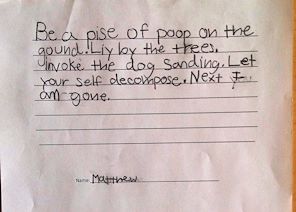 Be a pise of poop on the
gound. Liy by the trees.
Invoke the dog sanding. Let
your self decompose. Next I
am gone.
Name: Matthew